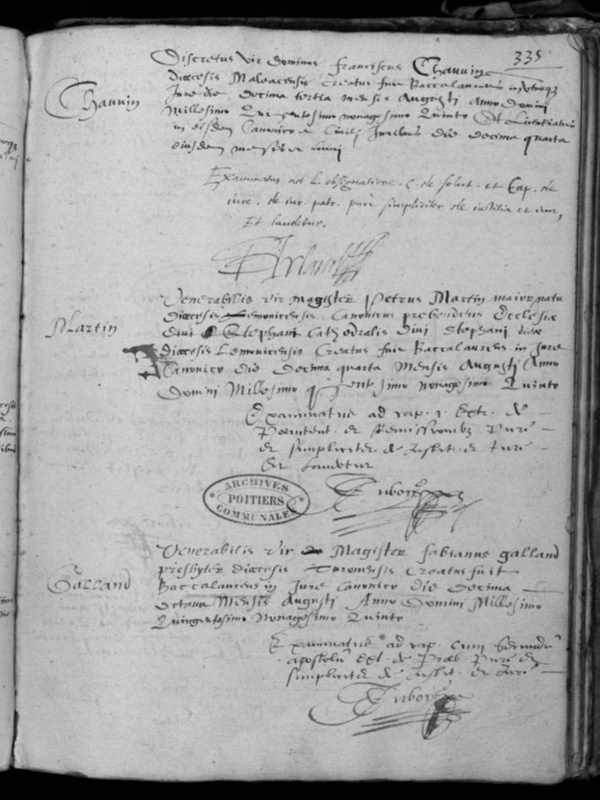 335
Chauvin
Discretus Vir Dominus Franciscus Chauvin
diocesis Maleacensis creatus fuit Baccalaureus in utroq
Jure die decima tertia mensis Augusti Anno Domini
Millesimo Quingentesimo nonagesimo Quinto Et Licentiatus
in eisdem Canonico et Civili Juribus die decima quarta
eiusdem mensis et anni
Examinatus ad L. obsignatione. C. de solut. et Cap. de
iure. de iur. patr. pure simpliciter de iustitia et iure,
Et laudetur.
Martin
Venerabilis vir Magister Petrus Martin maior natu
diocesis Lemovicensis Canonicus prebendatus Ecclesiæ
divi Stephani Cathedralis Divi Stephani dictæ
Diocesis Lemovicensis Creatus fuit Baccalaureus in Jure
Canonico Die Decima quarta Mensis Augusti Anno
Domini Millesimo quingentesimo nonagesimo Quinto
Examinatus ad cap. 1 Extr. de
Poenitent. et Remissionibz Pure
et simpliciter de Justit. et Jure
Et Laudetur
ARCHIVES
POITIERS
COMMUNALES
Galland
Venerabilis Vir Magister fabianus galland
presbyter diocesis Turonensis Creatus fuit
Baccalaureus in Jure Canonico Die Decima
octava Mensis Augusti Anno Domini Millesimo
Quingentesimo Nonagesimo Quinto
Examinatus ad cap. cum secundu
apostolu Ext. de Præb. Pure et
simpliciter de Justit. et Jure